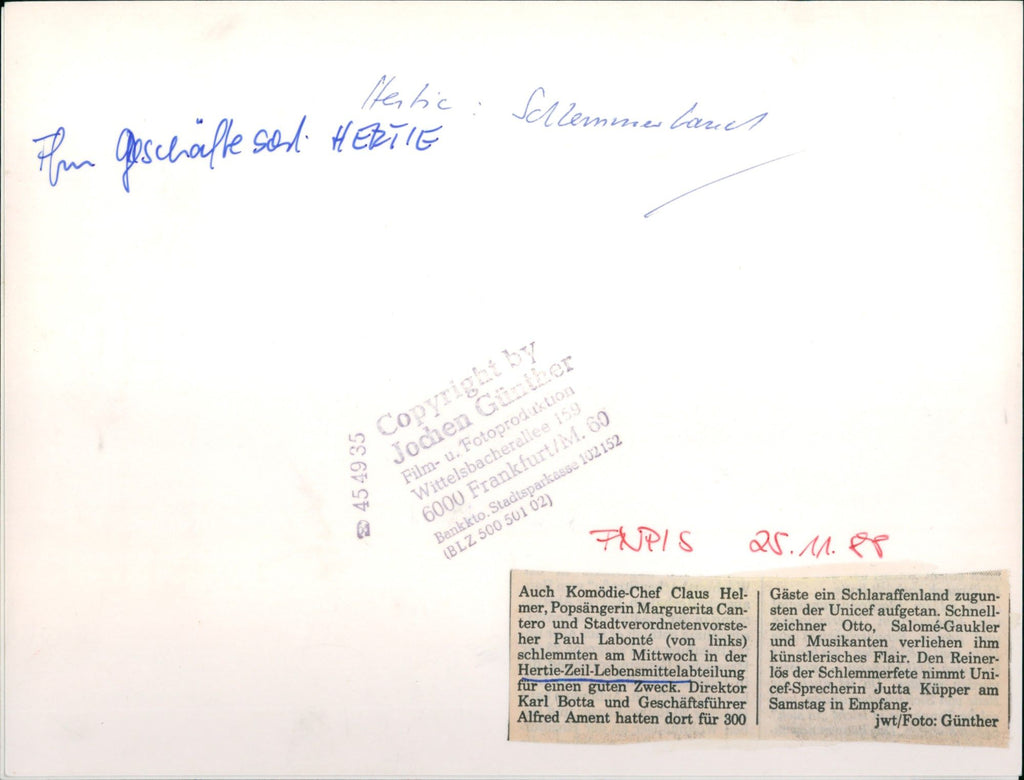 Hertie : Schlemmerland
Ffm Geschäfte sed. HERTIE
Copyright by
Jochen Günther
Film- u. Fotoproduktion
Wittelsbacherallee 159
6000 Frankfurt/M. 60
Bankkto. Stadtsparkasse 102152
(BLZ 500 501 02)
☎ 45 49 35
FNP/S 25.11.88
Auch Komödie-Chef Claus Hel-
mer, Popsängerin Marguerita Can-
tero und Stadtverordnetenvorste-
her Paul Labonté (von links)
schlemmten am Mittwoch in der
Hertie-Zeil-Lebensmittelabteilung
für einen guten Zweck. Direktor
Karl Botta und Geschäftsführer
Alfred Ament hatten dort für 300
Gäste ein Schlaraffenland zugun-
sten der Unicef aufgetan. Schnell-
zeichner Otto, Salomé-Gaukler
und Musikanten verliehen ihm
künstlerisches Flair. Den Reiner-
lös der Schlemmerfete nimmt Uni-
cef-Sprecherin Jutta Küpper am
Samstag in Empfang.
jwt/Foto: Günther